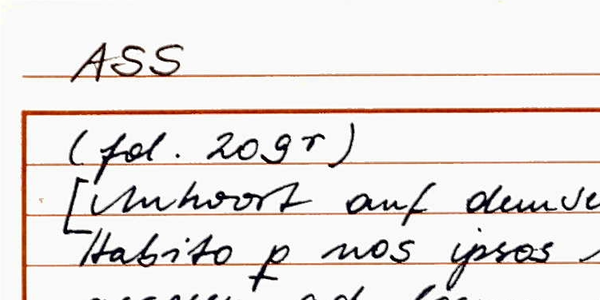 ASS
(fol. 209r)
[Antwort auf demse
Habito p nos ipsos